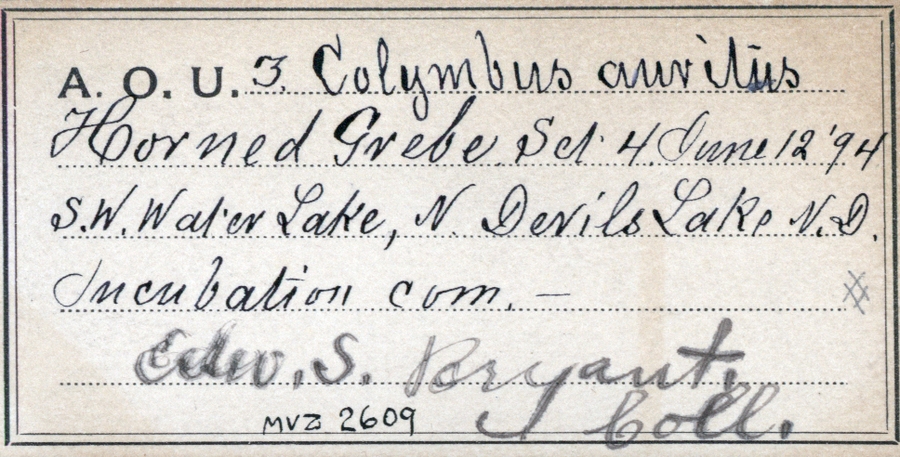 A. O. U. 3. Colymbus auritus
Horned Grebe. Set 4. June 12 '94
S.W. Water Lake, N. Devils Lake N.D.
Incubation com. —
Edw. S. Bryant,
Coll.
MVZ 2609